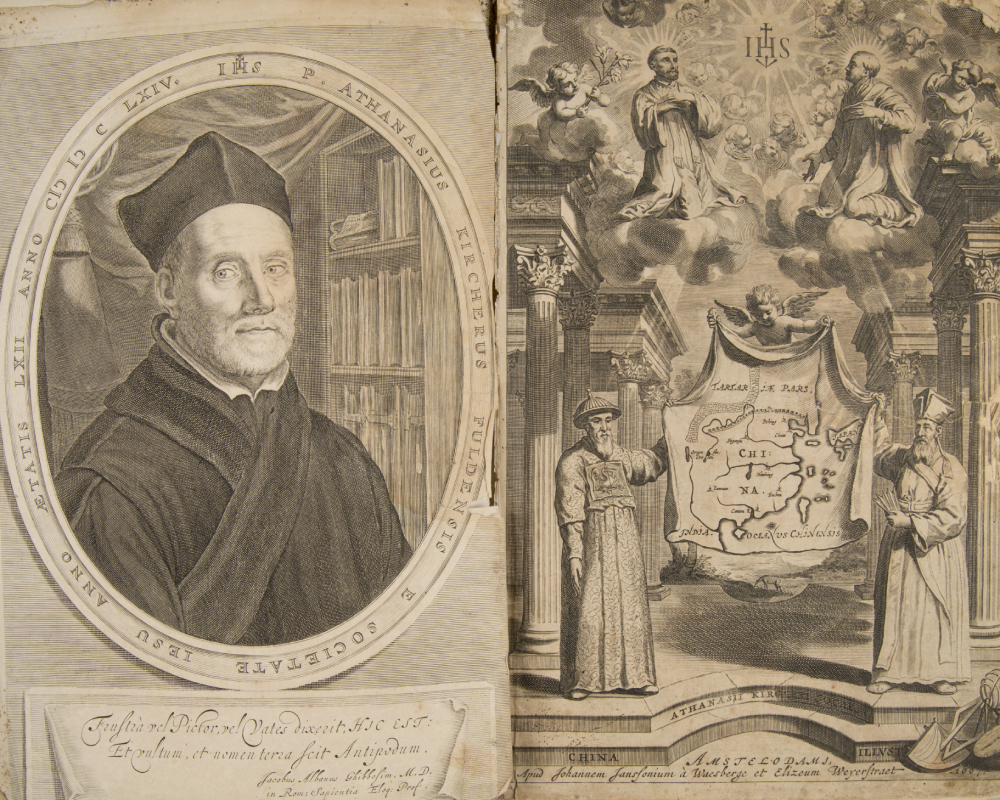 IHS P. ATHANASIUS KIRCHERUS FULDENSIS E SOCIETATE IESU ANNO ÆTATIS LXII ANNO CIƆ IƆ C LXIV.
Frustra vel Pictor, vel Vates dixerit, HIC EST:
Et vultum, et nomen terra scit Antipodum.
Jacobus Albanus Ghibbesim, M. D.
in Rom: Sapientia Eloq: Prof:
IHS
TARTARIÆ PARS.
CHI:
NA.
INDIA.
OCEANUS CHINENSIS
ATHANASII
CHINA
AMSTELODAMI,
Apud Johannem Janssonium à Waesberge et Elizeum Weyerstraet